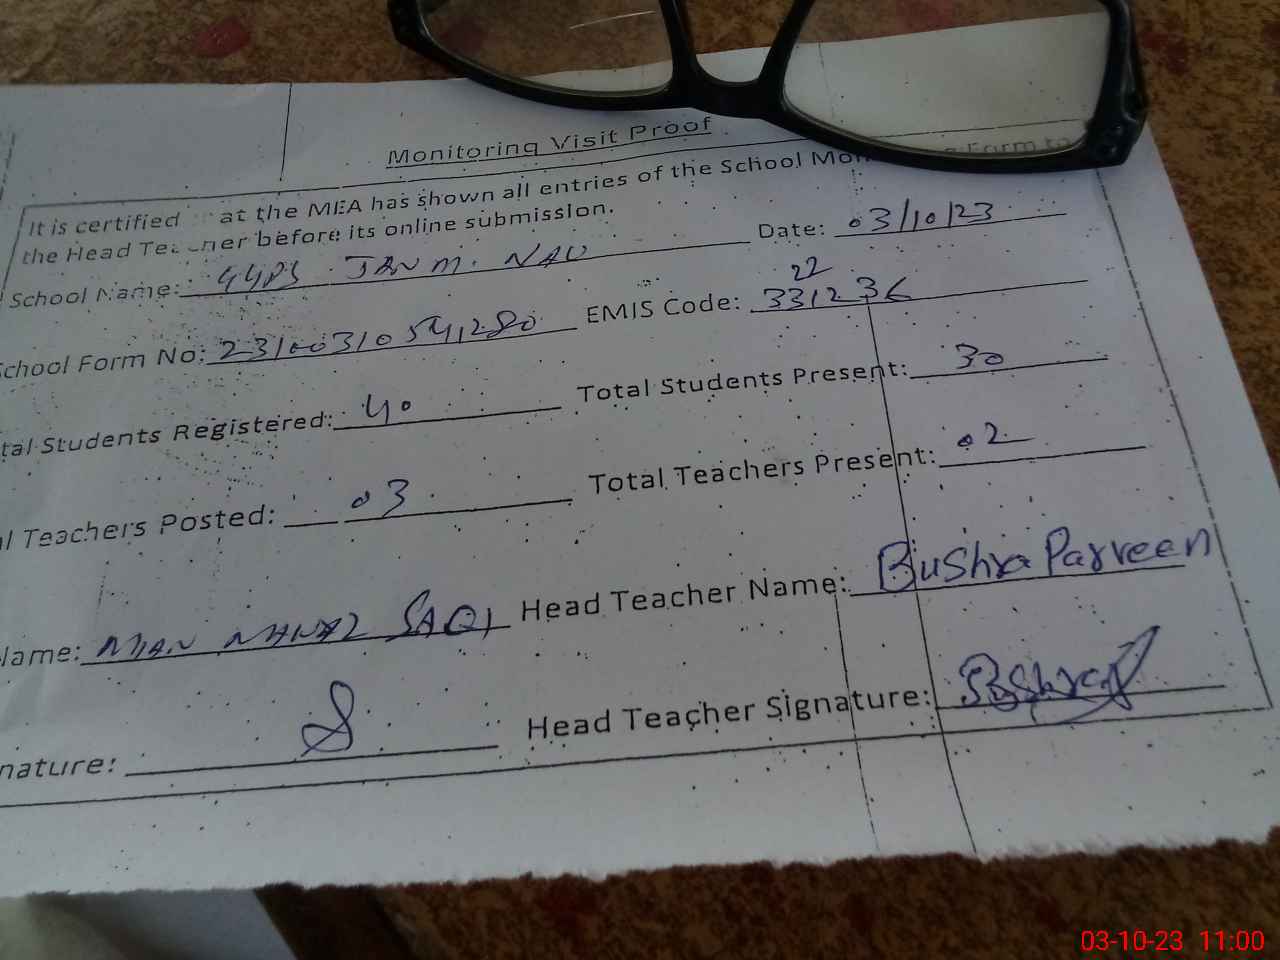 Monitoring Visit Proof
It is certified at the MEA has shown all entries of the School Form to
the Head Teacher before its online submission.
School Name: GGPS JAN M. NAO Date: 03/10/23
School Form No: EMIS Code: 331236
22
tal Students Registered: 40 Total Students Present: 30
l Teachers Posted: 03 Total Teachers Present: 02
Name: MIAN SAQI Head Teacher Name: Bushra Parveen
nature: Head Teacher Signature: Bushra
03-10-23 11:00